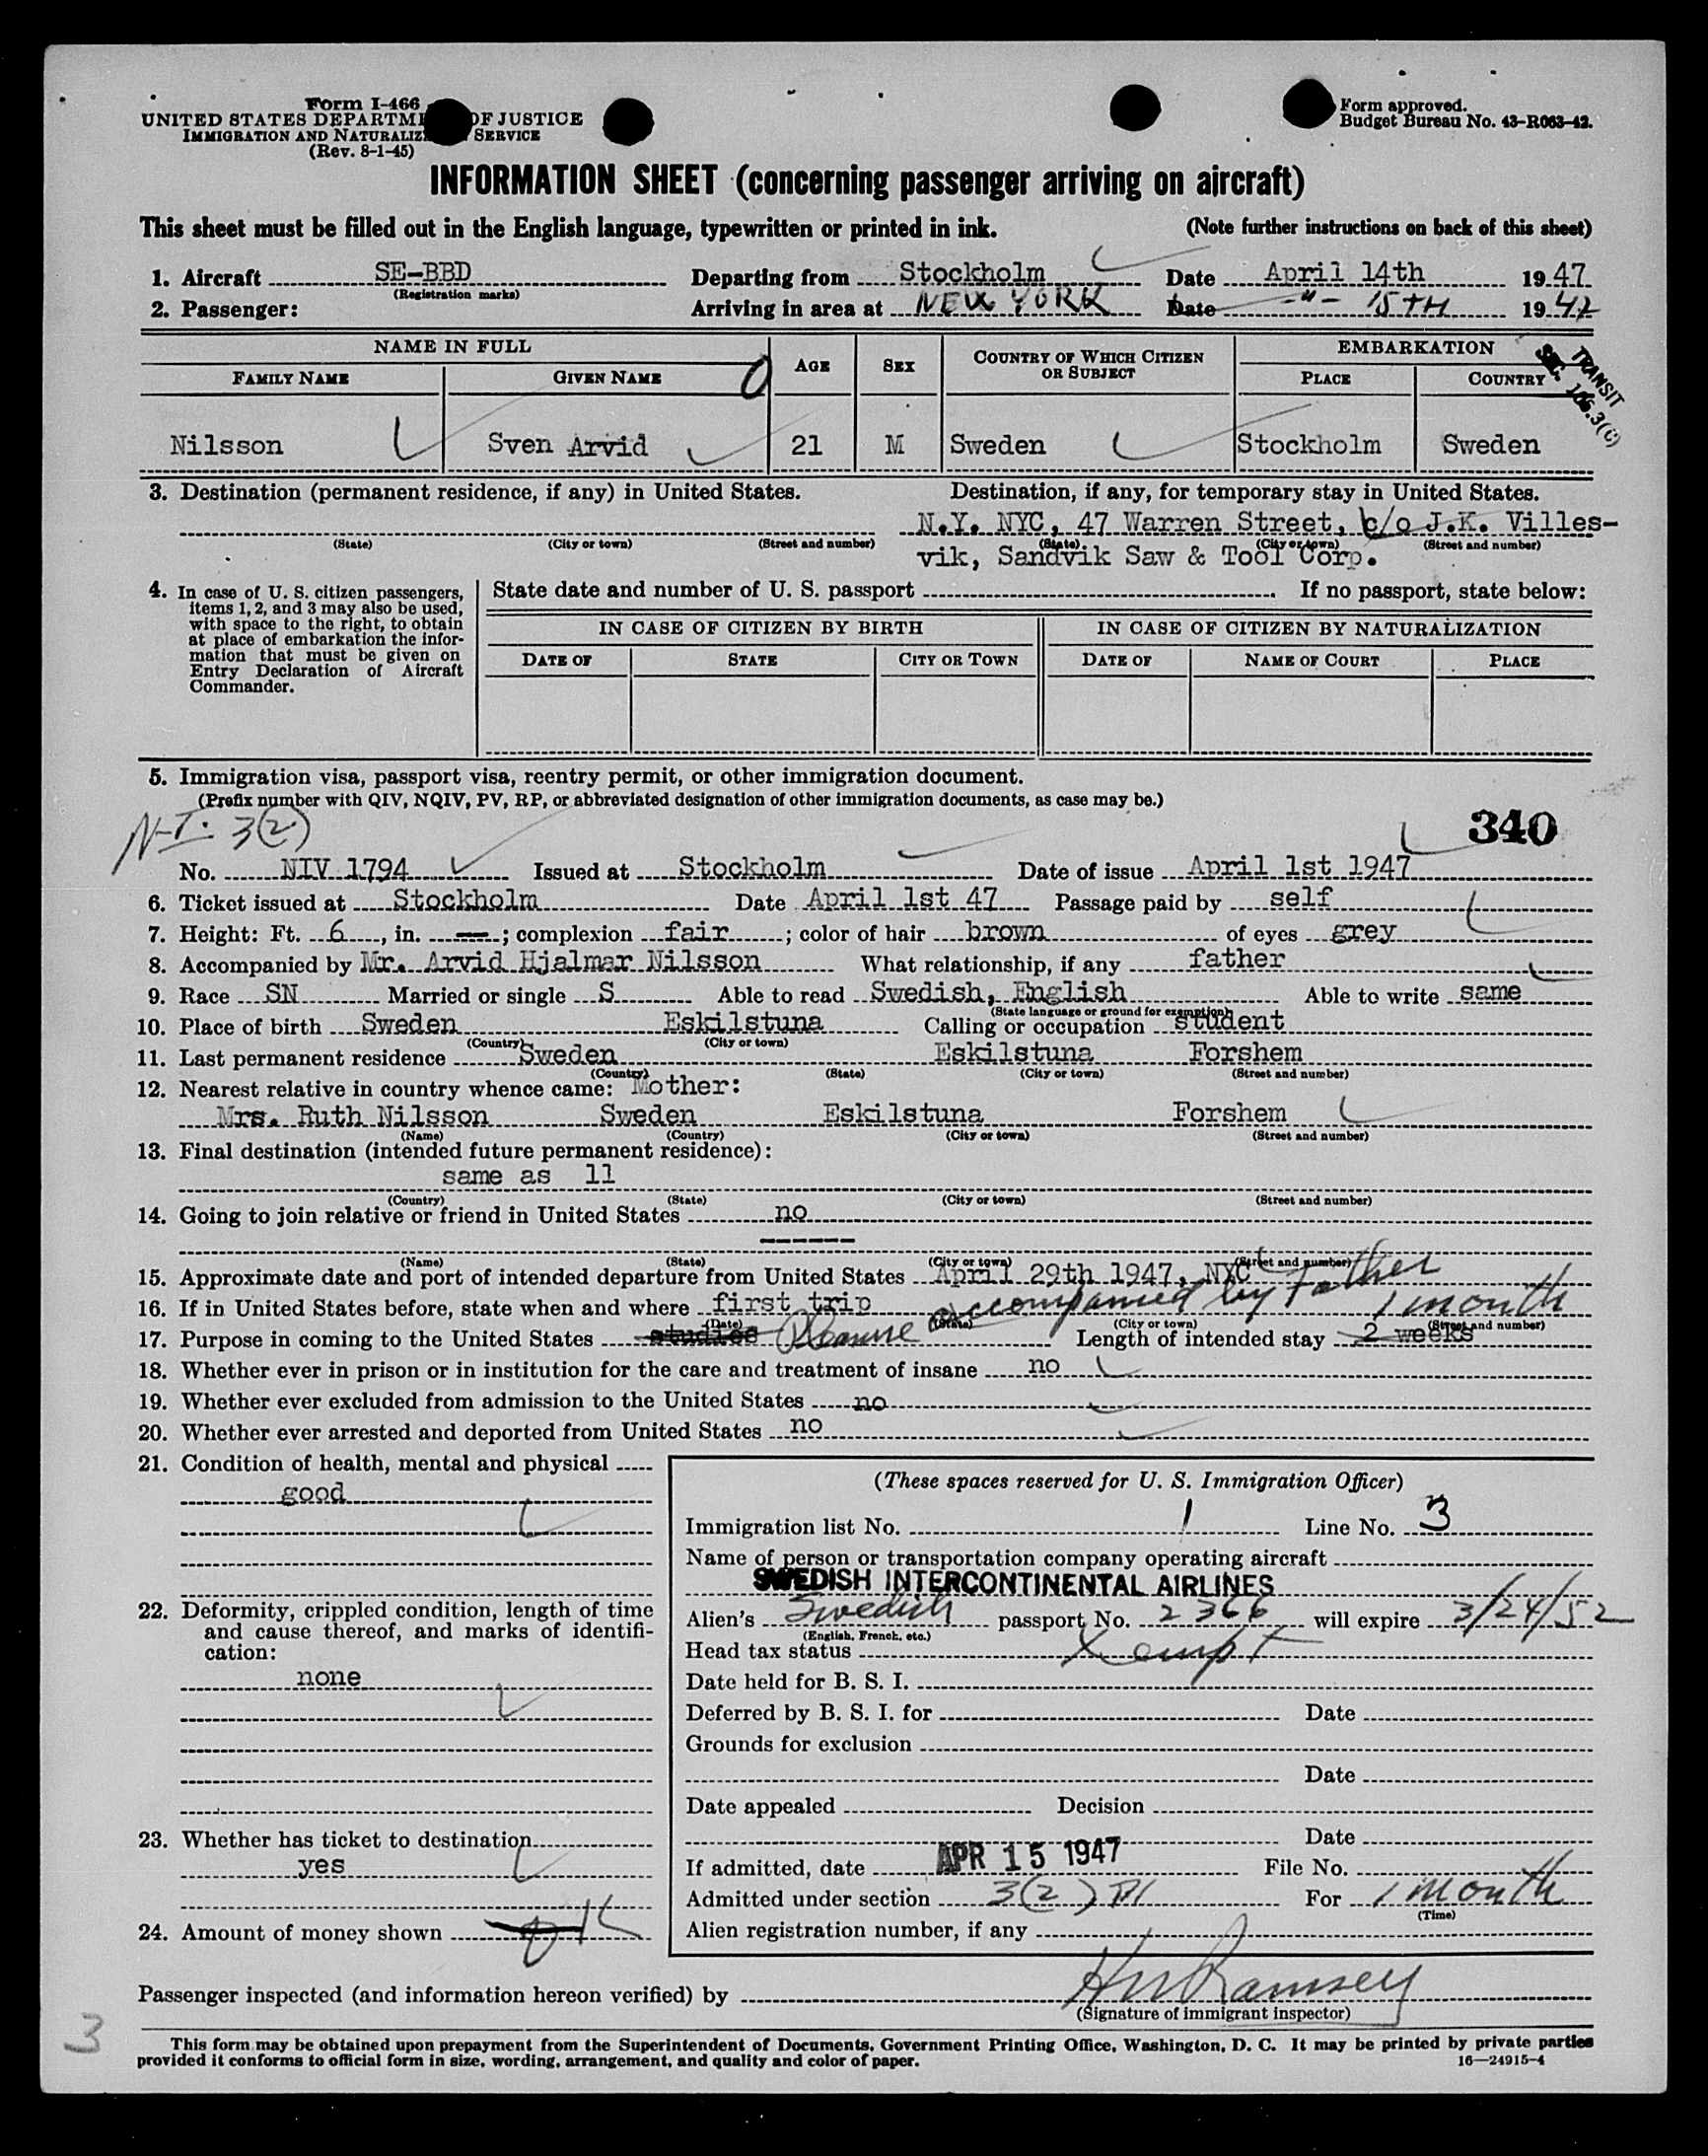 Form I-466
UNITED STATES DEPARTM OF JUSTICE
IMMIGRATION AND NATURALIZ SERVICE
(Rev. 8-1-45)
Form approved.
Budget Bureau No. 43-R063-42.
INFORMATION SHEET (concerning passenger arriving on aircraft)
This sheet must be filled out in the English language, typewritten or printed in ink. (Note further instructions on back of this sheet)
1. Aircraft SE-BBD Departing from Stockholm Date April 14th 1947
(Registration marks)
2. Passenger: Arriving in area at NEW YORK Date -"- 15TH 1947
NAME IN FULL AGE SEX COUNTRY OF WHICH CITIZEN OR SUBJECT EMBARKATION
FAMILY NAME GIVEN NAME PLACE COUNTRY
TRANSIT
SEC. 106.3(C)
Nilsson Sven Arvid 21 M Sweden Stockholm Sweden
3. Destination (permanent residence, if any) in United States. Destination, if any, for temporary stay in United States.
N.Y. NYC, 47 Warren Street, c/o J.K. Villes-
(State) (City or town) (Street and number) (State) (City or town) (Street and number)
vik, Sandvik Saw & Tool Corp.
4. In case of U. S. citizen passengers,
items 1, 2, and 3 may also be used,
with space to the right, to obtain
at place of embarkation the infor-
mation that must be given on
Entry Declaration of Aircraft
Commander.
State date and number of U. S. passport . If no passport, state below:
IN CASE OF CITIZEN BY BIRTH IN CASE OF CITIZEN BY NATURALIZATION
DATE OF STATE CITY OR TOWN DATE OF NAME OF COURT PLACE
5. Immigration visa, passport visa, reentry permit, or other immigration document.
(Prefix number with QIV, NQIV, PV, RP, or abbreviated designation of other immigration documents, as case may be.)
N-I. 3(2) 340
No. NIV 1794 Issued at Stockholm Date of issue April 1st 1947
6. Ticket issued at Stockholm Date April 1st 47 Passage paid by self
7. Height: Ft. 6, in. —; complexion fair; color of hair brown of eyes grey
8. Accompanied by Mr. Arvid Hjalmar Nilsson What relationship, if any father
9. Race SN Married or single S Able to read Swedish, English Able to write same
(State language or ground for exemption)
10. Place of birth Sweden Eskilstuna Calling or occupation student
(Country) (City or town)
11. Last permanent residence Sweden Eskilstuna Forshem
(Country) (State) (City or town) (Street and number)
12. Nearest relative in country whence came: Mother:
Mrs. Ruth Nilsson Sweden Eskilstuna Forshem
(Name) (Country) (City or town) (Street and number)
13. Final destination (intended future permanent residence):
same as 11
(Country) (State) (City or town) (Street and number)
14. Going to join relative or friend in United States no
------
(Name) (State) (City or town) (Street and number)
15. Approximate date and port of intended departure from United States April 29th 1947, NYC
16. If in United States before, state when and where first trip accompanied by Father
(Date) (State) (City or town) (Street and number)
1 month
17. Purpose in coming to the United States studies Pleasure Length of intended stay 2 weeks
18. Whether ever in prison or in institution for the care and treatment of insane no
19. Whether ever excluded from admission to the United States no
20. Whether ever arrested and deported from United States no
21. Condition of health, mental and physical
good
22. Deformity, crippled condition, length of time
and cause thereof, and marks of identifi-
cation:
none
23. Whether has ticket to destination
yes
24. Amount of money shown ok
(These spaces reserved for U. S. Immigration Officer)
Immigration list No. 1 Line No. 3
Name of person or transportation company operating aircraft
SWEDISH INTERCONTINENTAL AIRLINES
Alien's Swedish passport No. 2366 will expire 3/24/52
(English, French, etc.)
Head tax status Xempt
Date held for B. S. I.
Deferred by B. S. I. for Date
Grounds for exclusion
Date
Date appealed Decision
Date
If admitted, date APR 15 1947 File No.
Admitted under section 3(2) Pl For 1 month
(Time)
Alien registration number, if any
Passenger inspected (and information hereon verified) by HW Ramsey
(Signature of immigrant inspector)
3
This form may be obtained upon prepayment from the Superintendent of Documents, Government Printing Office, Washington, D. C. It may be printed by private parties
provided it conforms to official form in size, wording, arrangement, and quality and color of paper. 16—24915-4